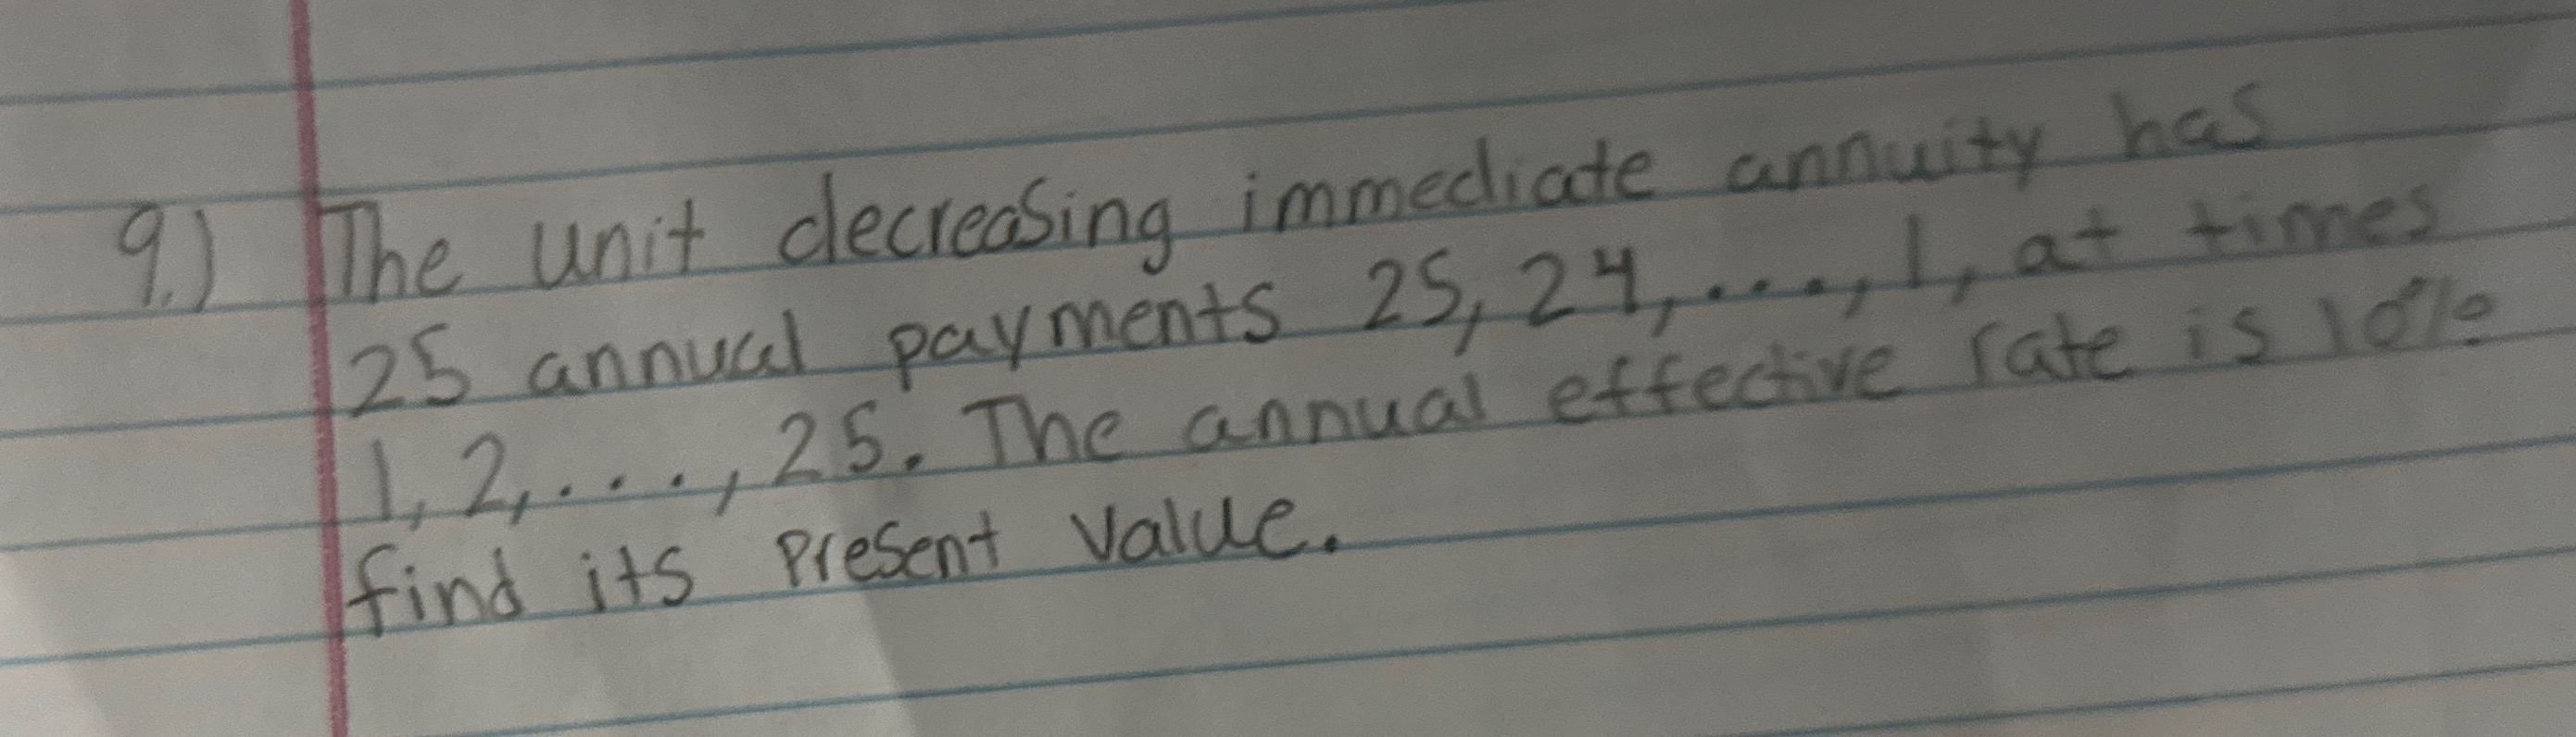 9.) The unit decreasing immediate annuity has
25 annual payments 25, 24, ..., 1, at times
1, 2, ..., 25. The annual effective rate is 10%
find its present value.